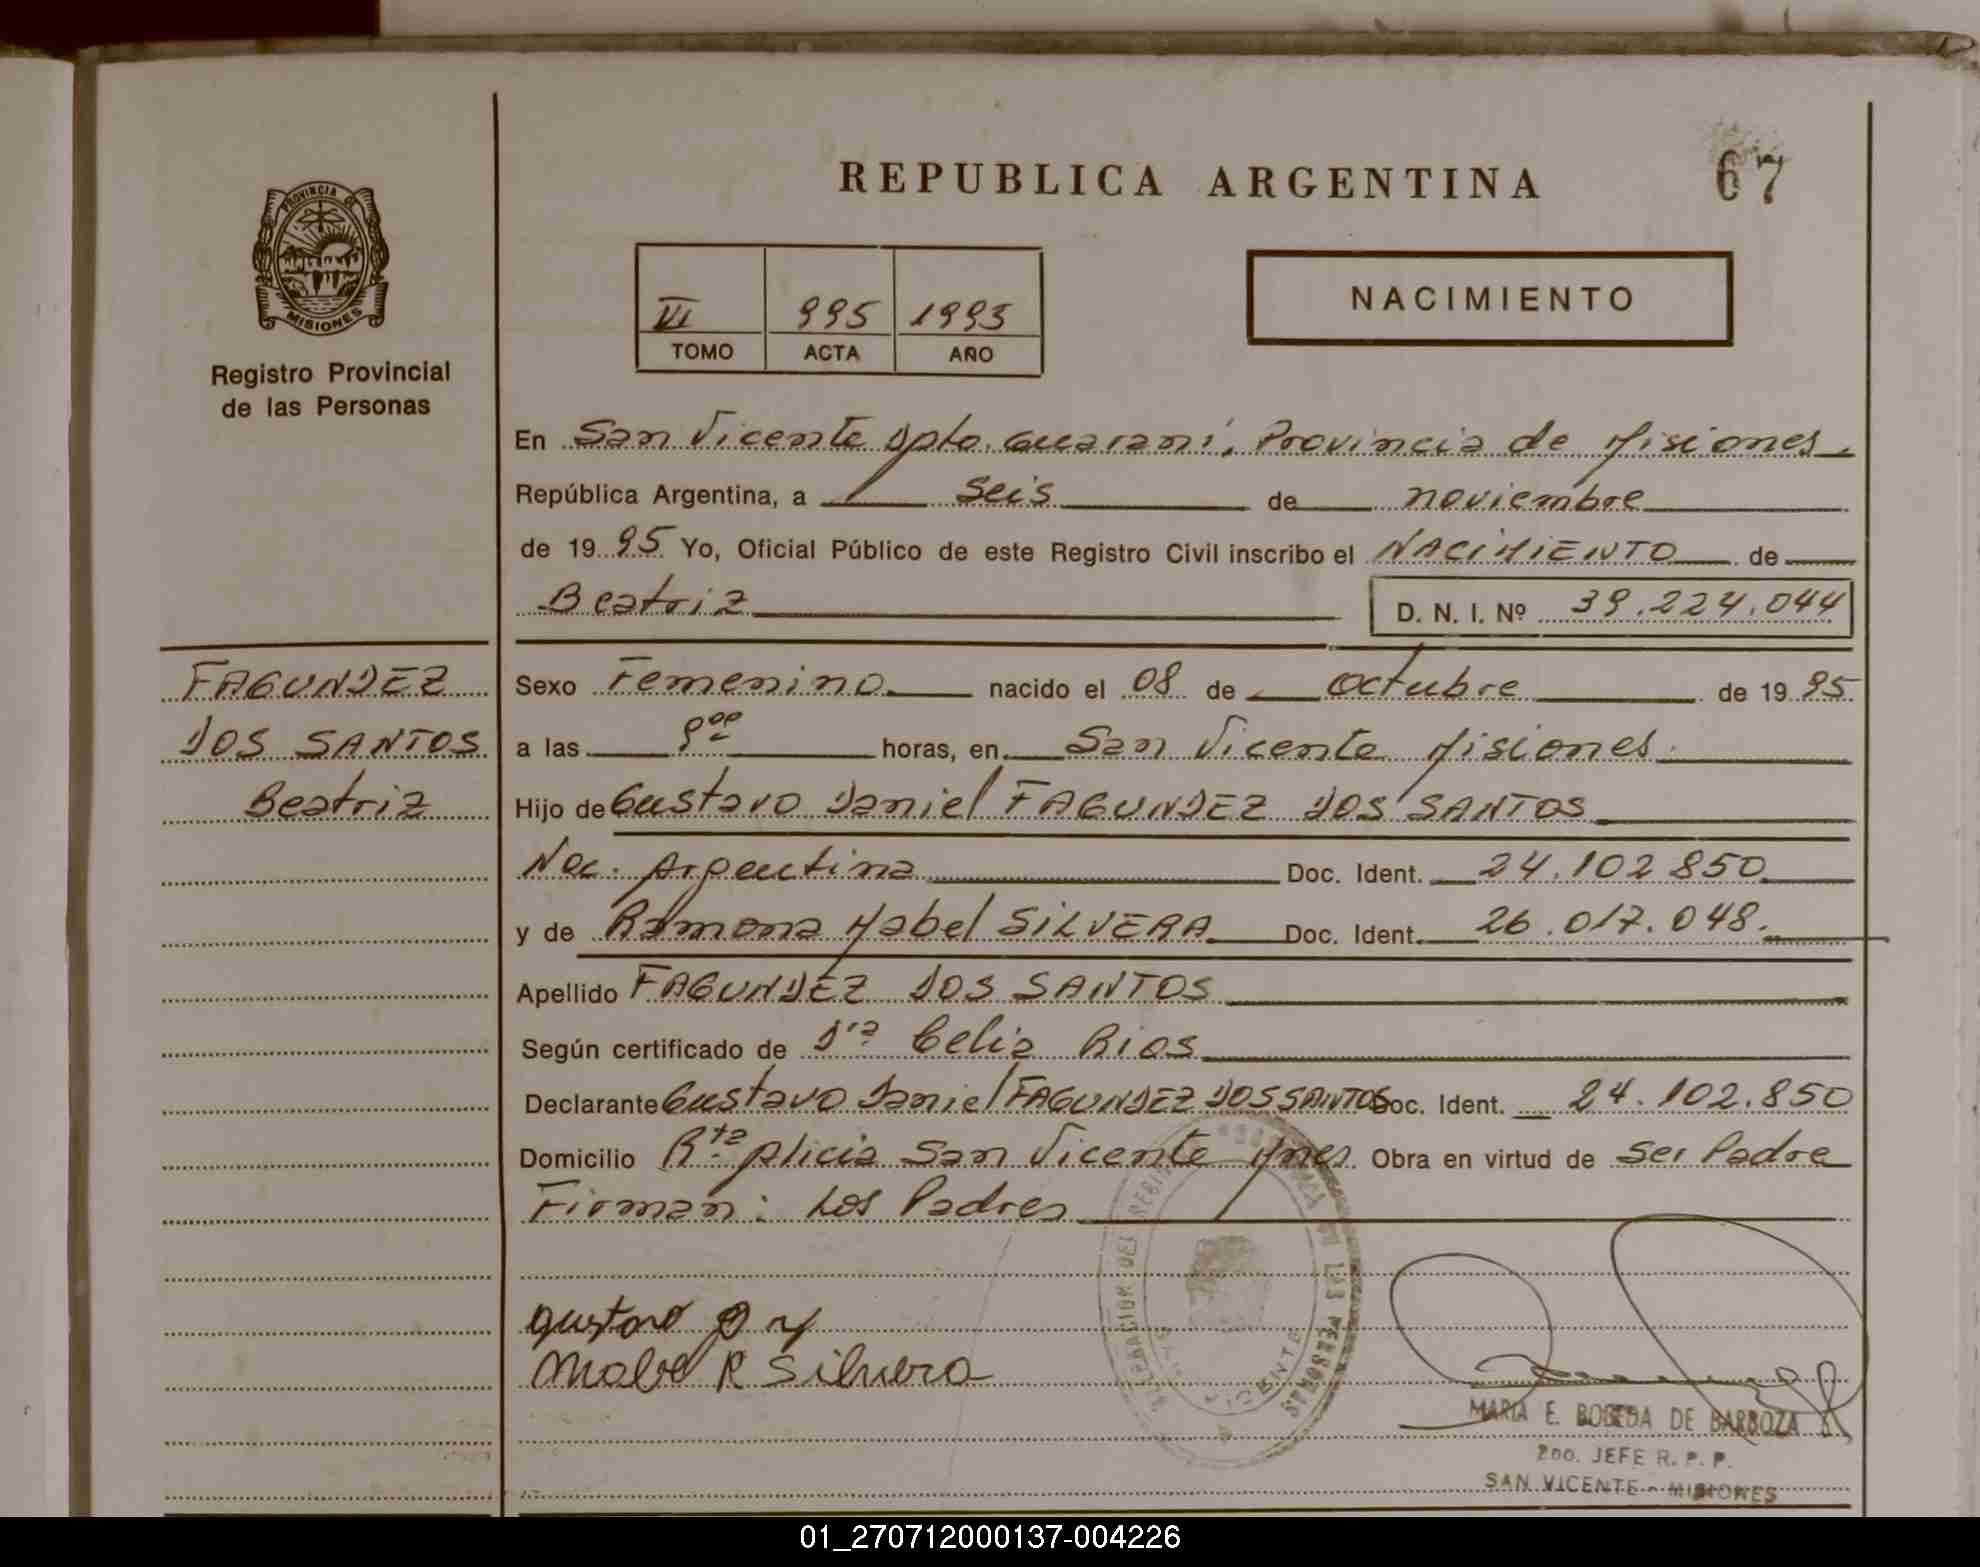 PROVINCIA DE
MISIONES
Registro Provincial
de las Personas
FAGUNDEZ
DOS SANTOS
Beatriz
REPUBLICA ARGENTINA
67
VI 995 1995
TOMO ACTA AÑO
NACIMIENTO
En San Vicente Dpto. Guaraní, Provincia de Misiones
República Argentina, a seis de noviembre
de 1995 Yo, Oficial Público de este Registro Civil inscribo el NACIMIENTO de
Beatriz D. N. I. Nº 39.224.044
Sexo Femenino nacido el 08 de octubre de 1995
a las 9⁰⁰ horas, en San Vicente Misiones
Hijo de Gustavo Daniel FAGUNDEZ DOS SANTOS
Nac. Argentina Doc. Ident. 24.102.850
y de Ramona Mabel SILVERA Doc. Ident. 26.017.048.
Apellido FAGUNDEZ DOS SANTOS
Según certificado de Dra Celia Rios
Declarante Gustavo Daniel FAGUNDEZ DOS SANTOS Doc. Ident. 24.102.850
Domicilio Rta. plicia San Vicente Mnes. Obra en virtud de ser Padre
Firman: Los Padres
gustavo
Mabel R Silvera
MARIA E. BOBEDA DE BARBOZA
2do. JEFE R. P. P.
SAN VICENTE - MISIONES
01_270712000137-004226